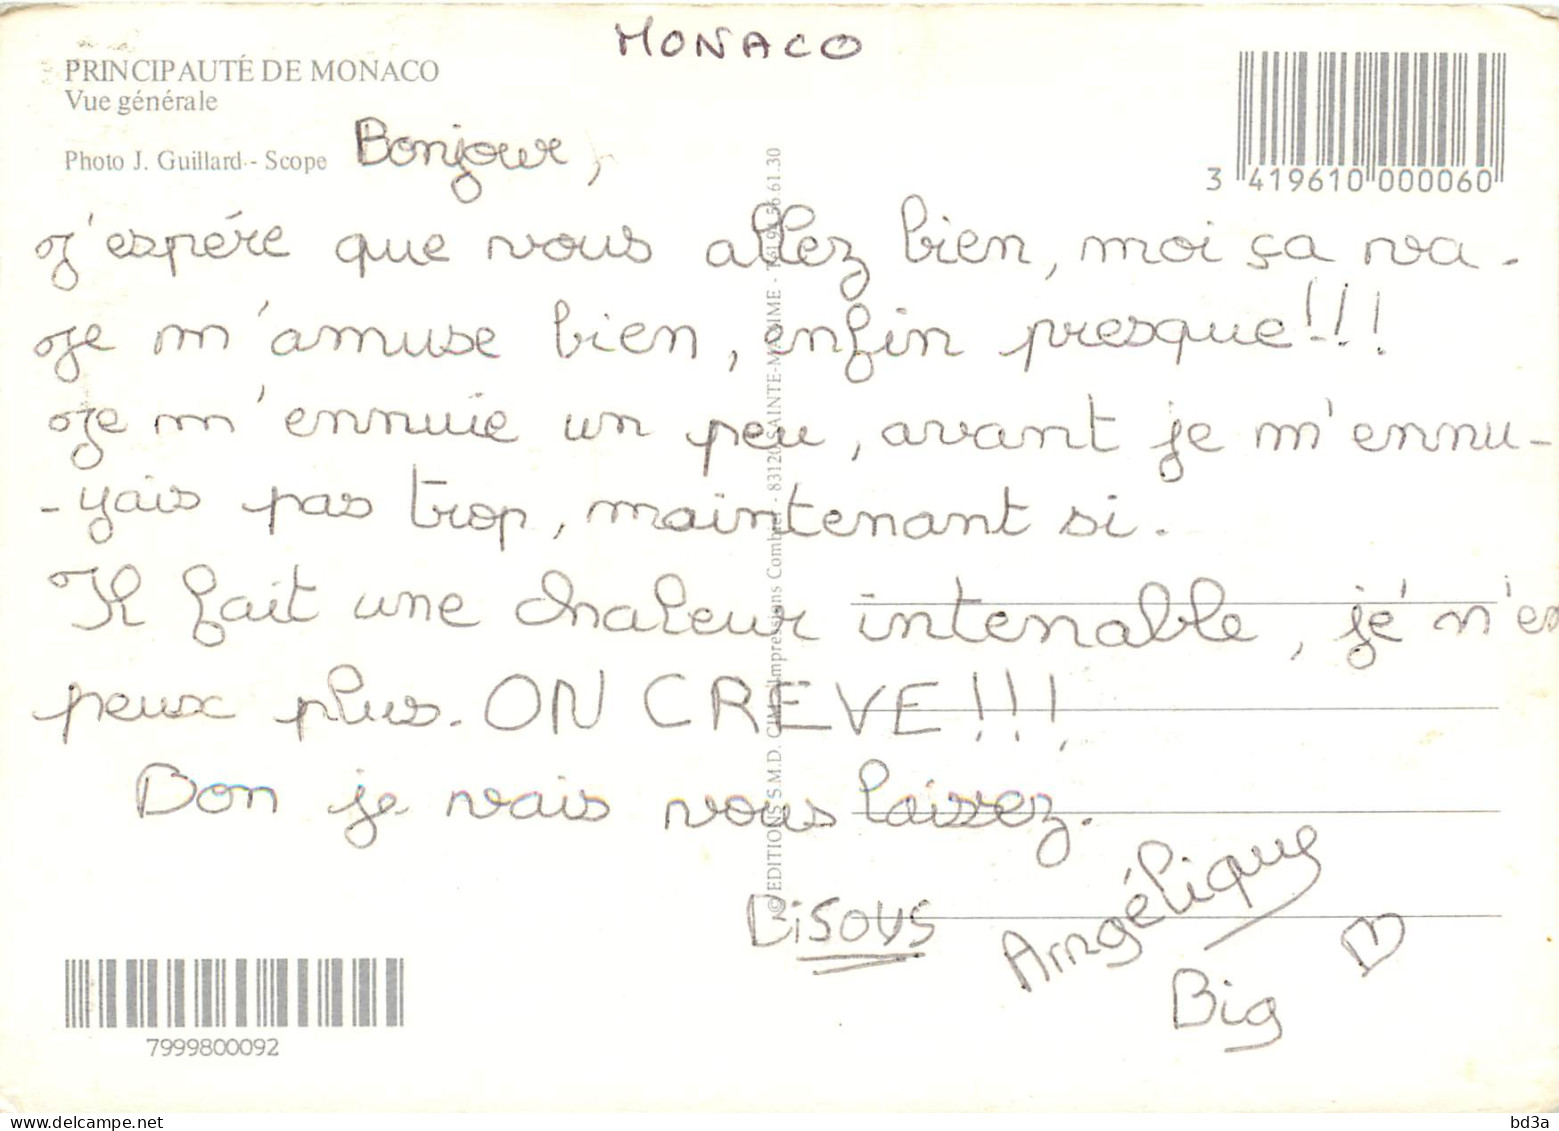 MONACO
PRINCIPAUTÉ DE MONACO
Vue générale
Photo J. Guillard - Scope
Bonjour,
3 419610 000060
J'espére que vous allez bien, moi ça va.
Je m'amuse bien, enfin presque!!!
Je m'ennuie un peu, avant je m'ennu-
-yais pas trop, maintenant si.
Il fait une chaleur intenable, jé n'en
peux plus. ON CREVE!!!
Bon je vais vous laissez.
BiSOUS
Angélique
Big
© EDITIONS S.M.D. Impressions Combier - 83120 SAINTE-MAXIME - 56.61.30
7999800092
bd3a